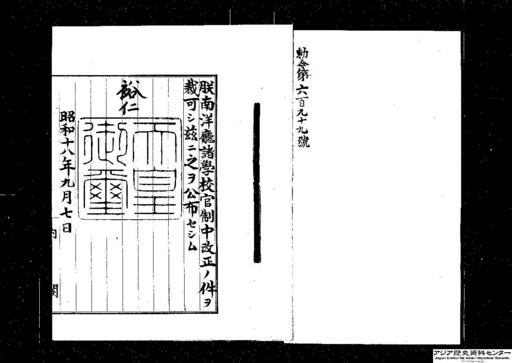 勅令第六百九十九號
朕南洋廳諸學校官制中改正ノ件ヲ
裁可シ茲ニ之ヲ公布セシム
裕仁
天皇
御璽
昭和十八年九月七日
内
閣
アジア歴史資料センター
Japan Center for Asian Historical Records